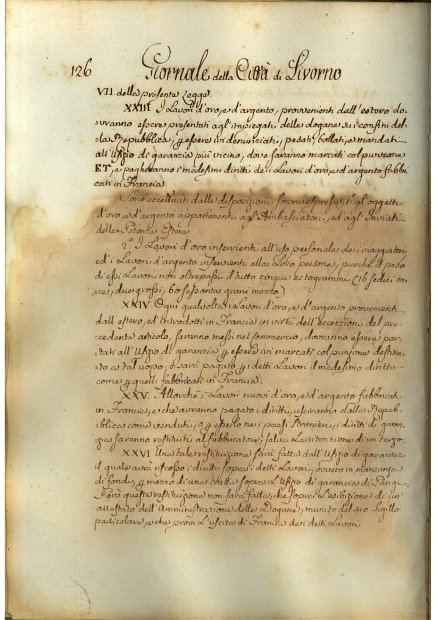 126 Giornale della Città di Livorno
VII della presente Legge.
XXIII I Lavori d'oro, e d'argento, provenienti dall'estero do-
vranno essere presentati agl'impiegati delle dogane su i confini del-
la Repubblica, per essere ivi denunziati, pesati, bollati, e mandati
all'Ufizio di garanzia più vicino, dove saranno marcati col punzone
ET, e pagheranno i medesimi diritti dei Lavori d'oro, ed argento fabbri-
cati in Francia.
Sono eccettuati dalle disposizioni sopra espresse, 1° gl'oggetti
d'oro, ed argento appartenenti agl'Ambasciatori, ed agl'Inviati
delle Potenze Estere
2° I Lavori d'oro inservienti all'uso personale dei viaggiatori
ed i Lavori d'argento inservienti alla Loro persona, purchè il peso
di essi Lavori non oltrepassi d'tutto cinque ectogrammi (16 sedici on-
ce, due grossi, 60 sessanta grani mezzo)
XXIV Ogni qualvolta i Lavori d'oro, e d'argento provenienti
dall'estero, ed introdotti in Francia in virtù dell'eccezione del pre-
cedente articolo, saranno messi nel commercio, dovranno essere por-
tati all'Ufizio di garanzia per essere ivi marcati col punzone destina-
to a tal uopo; e sarà pagato per i detti Lavori il medesimo diritto
come per quelli fabbricati in Francia.
XXV. Allorchè i Lavori nuovi d'oro, e d'argento fabbricati
in Francia, e che avranno pagato i diritti, usciranno dalla Repub-
blica come venduti, o per esserlo nei paesi Stranieri, i diritti di garan-
zia saranno restituiti al fabbricatore, salvo la ritenzione di un terzo.
XXVI Una tale restituzione sarà fatta dall'Ufizio di garanzia
il quale avrà riscosso i diritti sopra i detti Lavori, ovvero in mancanza
di fondi, per mezzo di una tratta sopra l'Ufizio di garanzia di Parigi.
Però questa restituzione non sarà fatta, che sopra l'esibizione di un'
attestato dell'Amministrazione delle Dogane, munito del suo Sigillo
particolare, e che provi l'uscita di Francia dei detti Lavori